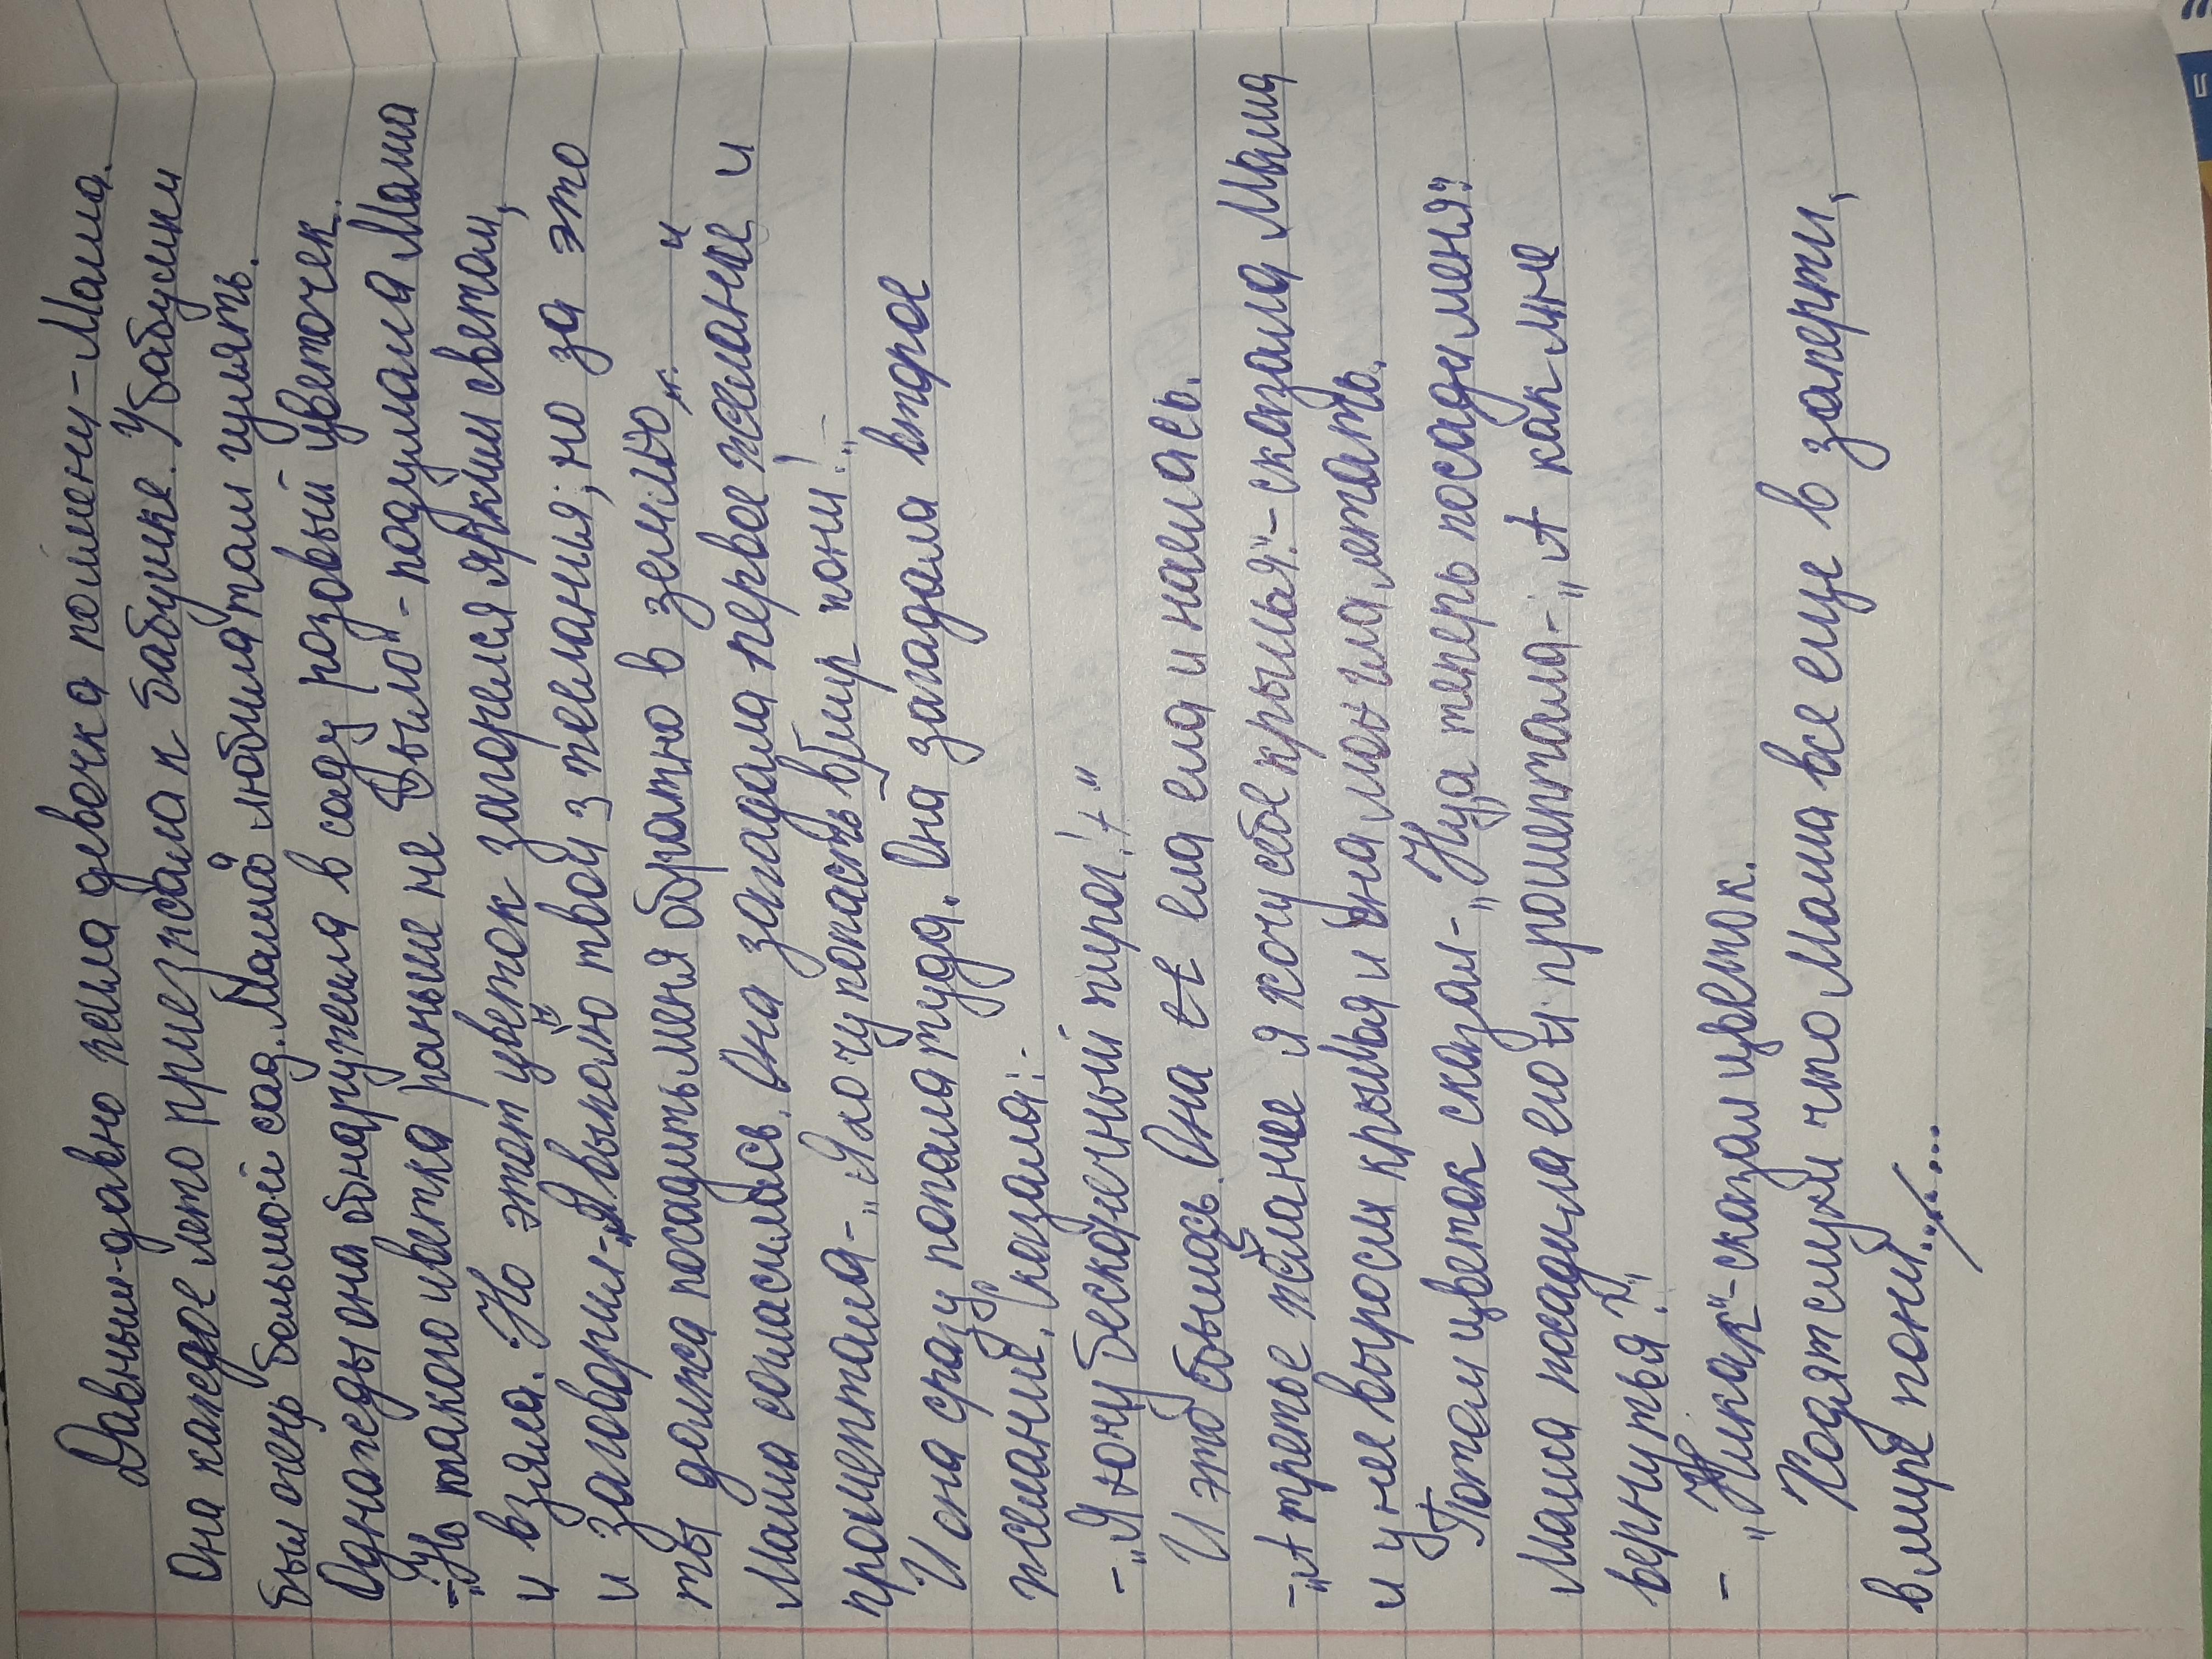 Давным-давно жила девочка поймени-Маша.
Она каждое лето приезжала к бабушке. У бабушки
был очень большой сад. Маша любила там гулять.
Однажды она обнаружила в саду розовый цветочек.
-„Но такого цветка раньше не было"-подумала Маша
и взяла. Но этот цветок загорелся ярким светом,
и заговорил-„Я выполю твои 3 желания; но за это
ты должа посадить меня обратно в землю."
Маша согласилась. Она загадала первое желание и
прошептала-„Я хочу попасть в мир пони!"
И она сразу попала туда. Она загадала второе
желание. Сказала:
-„Я хочу бесконечный пирог!"
И это сбылось. Она ела ела и наелась.
-„А третье желание я хочу себе крылья."-сказала Маша
и у нее выросли крылья и она могла летать.
Потом цветок сказал-„Нуа теперь посади меня"
Маша посадила его и прошептала-„А как мне
вернуться?"
-„Никак"-сказал цветок.
Ходят слухи что Маша все еще в заперти,
в мире пони...